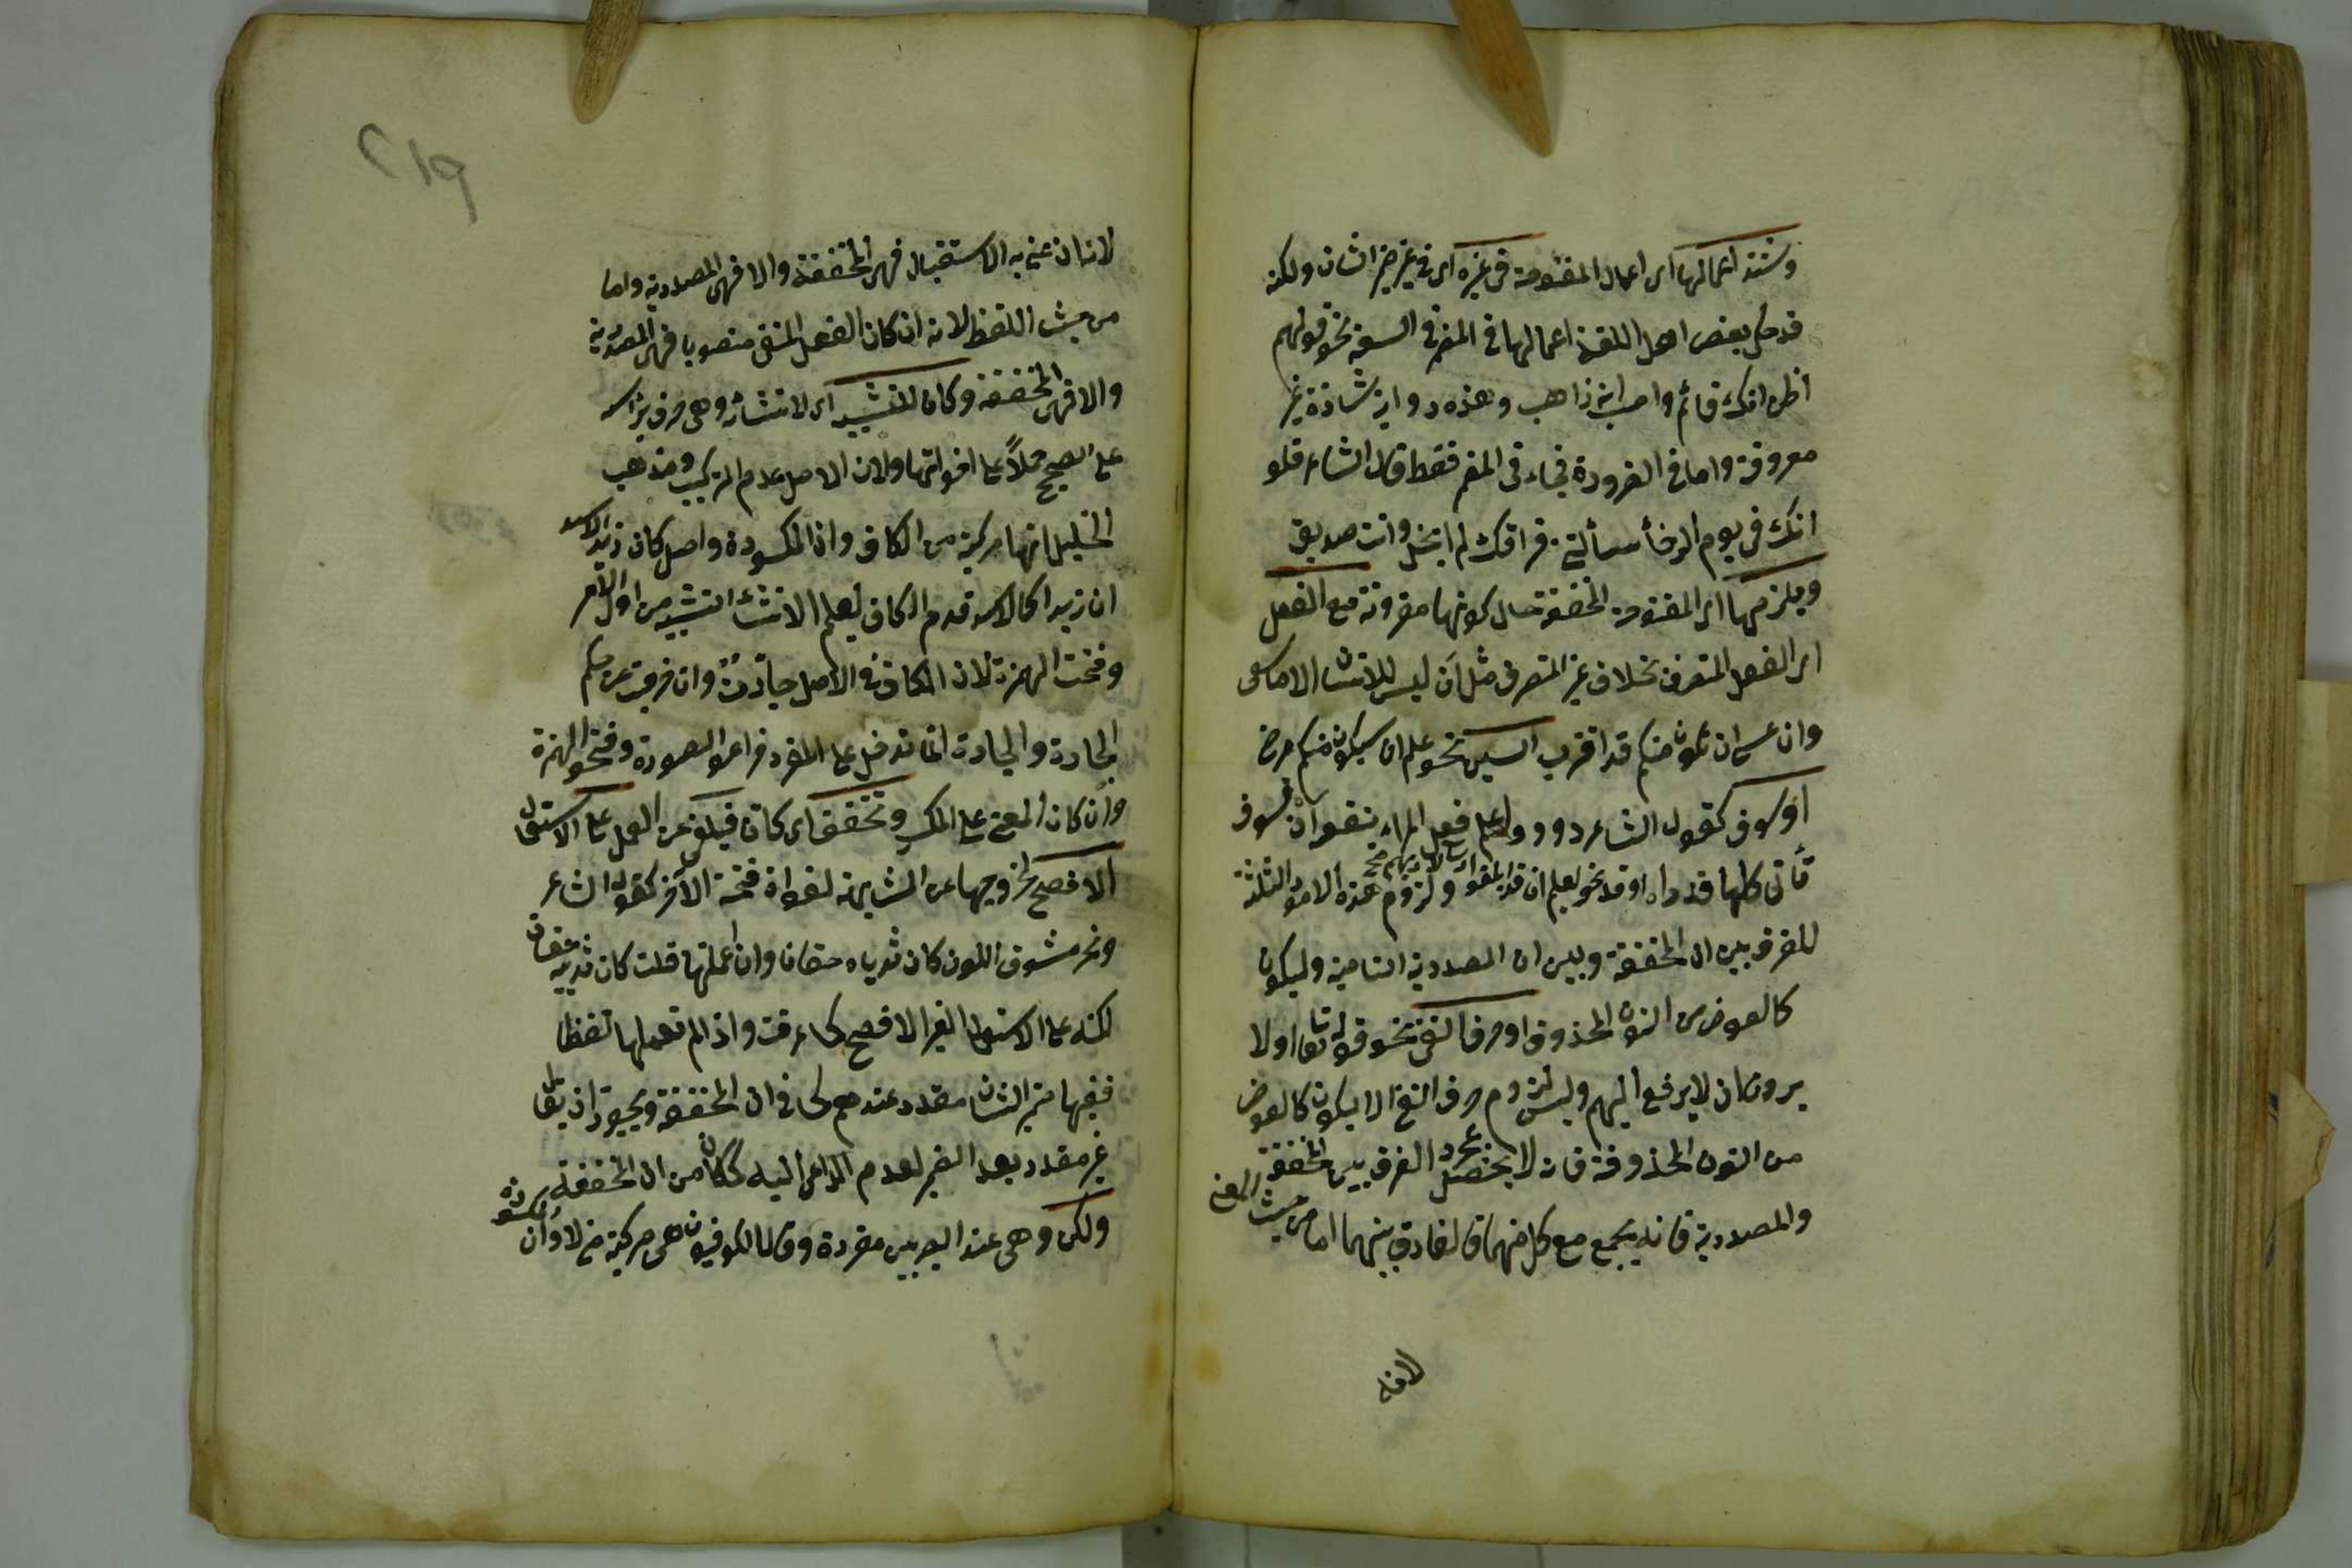 وشذ اعمالها اى اعمال المفتوحة فى غيره اى فى غير ضمير الشان ولكنه
قد حكى بعض اهل اللغة اعمالها فى المضمر فى السعة نحو قولهم
اظن انك قائم واحسب انه ذاهب وهذه رواية شاذة غير
معروفة واما فى الضرورة فجاء فى المضمر فقط قال الشاعر فلو
انك فى يوم الرخأ سألتنى فراقك لم ابخل وانت صديق
ويلزمها اى المفتوحة المخففة حال كونها مقرونة مع الفعل
اى الفعل المتصرف بخلاف غير المتصرف مثل ان ليس للانسان الا ما سعى
وان عسى ان يكون قد اقترب السين نحو علم ان سيكون منكم مرضى
او سوف كقول الشاعر واعلم فعلم المرء ينفعه ان سوف
يأتى كلما قدرا او قد نحو ليعلم ان قد ابلغوا رسالات ربهم ولزوم هذه الامور الثلثة
للفرق بين ان المخففة وبين ان المصدرية الناصبة وليكون
كالعوض من النون المحذوفة او حرف النفى نحو قوله تعالى اولا
يرون ان لا يرجع اليهم وليس لزوم حرف النفى الا ليكون كالعوض
من النون المحذوفة فانه لا يحصل بمجرده الفرق بين المخففة
والمصدرية فانه يجمع مع كل منهما فالفارق بينهما اما من حيث المعنى
لانه
٢١٩
لانه ان عنى به الاستقبال فهى المخففة والا فهى المصدرية واما
من حيث اللفظ لانه ان كان الفعل المنفى منصوبا فهى المصدرية
والا فهى المخففة وكان للتشبيه اى لانشائه وهى حرف برأسه
على الصحيح حملاً على اخواتها ولان الاصل عدم التركيب ومذهب
الخليل انها مركبة من الكاف وان المكسورة واصل كان زيدا الاسد
ان زيدا كالاسد قدم الكاف ليعلم انشاء التشبيه من اول الامر
وفتحت الهمزة لان الكاف فى الاصل جارة وان خرجت عن حكم
الجارة والجارة انما تدخل على المفرد فراعوا الصورة وفتحوا الهمزة
وان كان المعنى على الكسر وتخفف اى كان فتلغى عن العمل على الاستعمال
الافصح لخروجها عن المشابهة لفوات فتحة الآخر كقول الشاعر
ونحر مشرق اللون كان ثدياه حقان وان اعملتها قلت كان ثدييه حقان
لكنه على الاستعمال الغير الافصح كما عرفت واذا لم تعملها لفظا
ففيها ضمير الشان مقدر عندهم كما فى ان المخففة ويجوز ان يقال
غير مقدر بعدها الضمير لعدم الداعى اليه كما كان من ان المخففة
ولكن وهى عند البصريين مفردة وقال الكوفيون هى مركبة من لا وان المكسورة